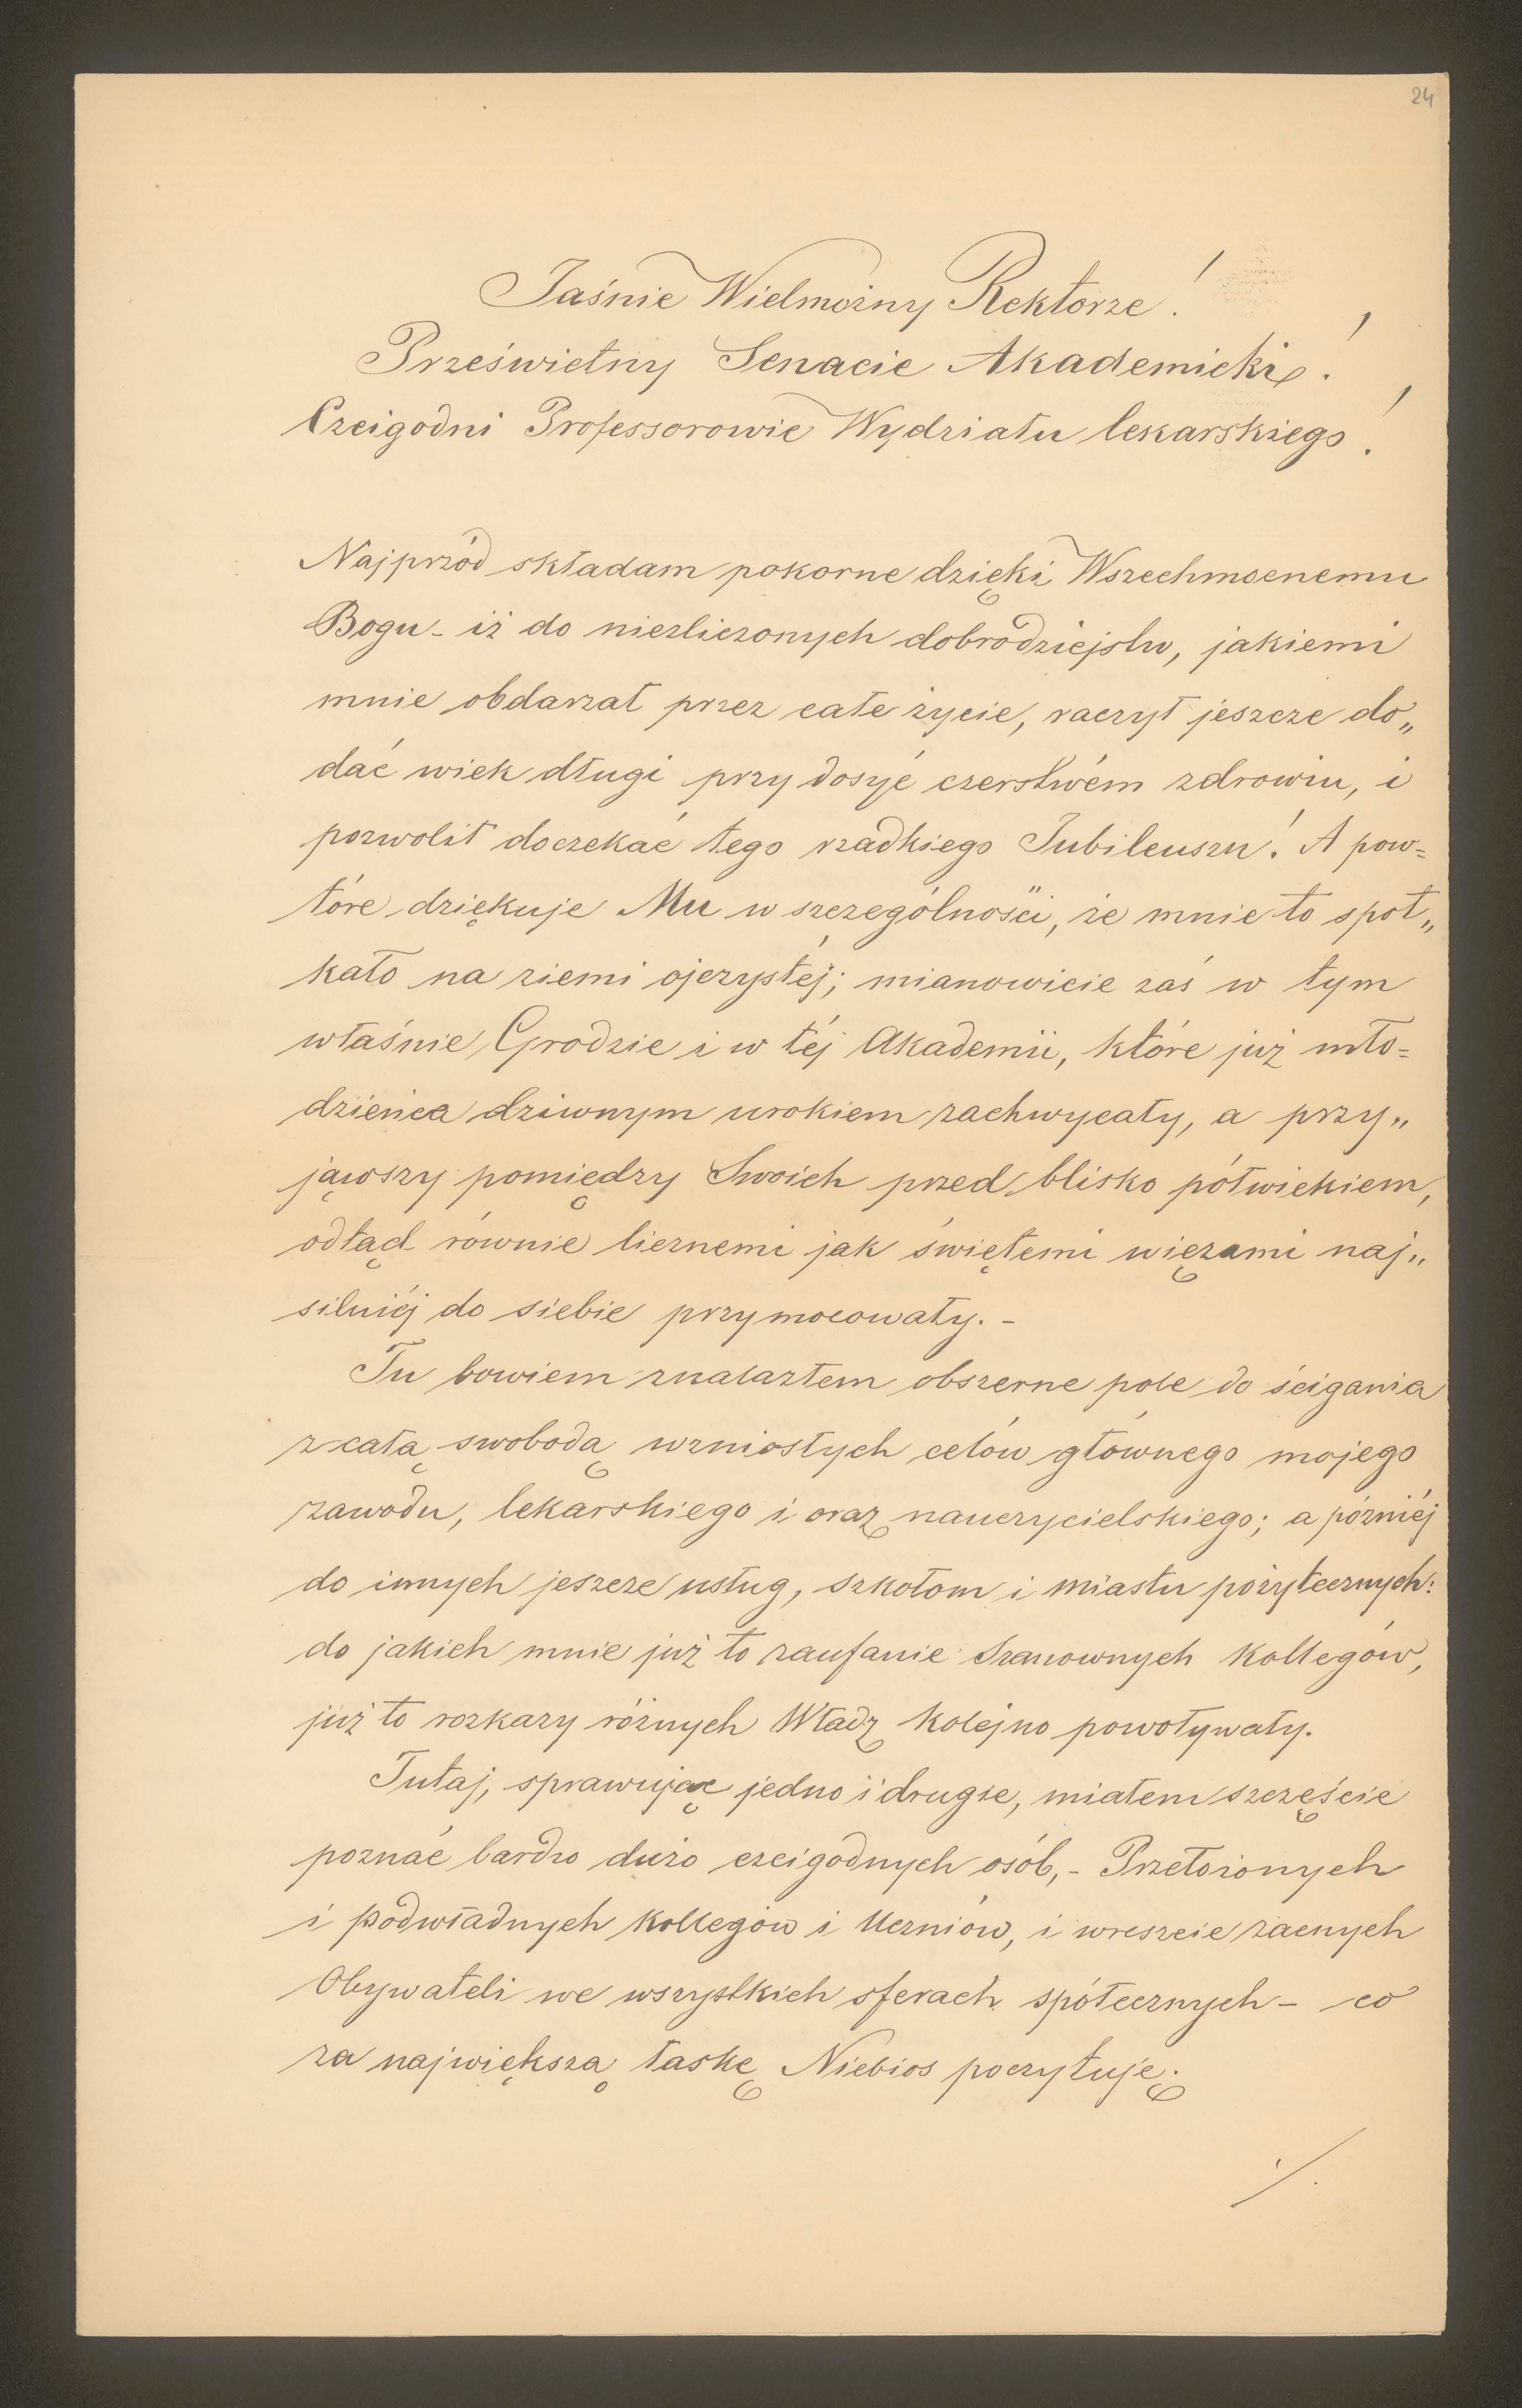 24
Jaśnie Wielmożny Rektorze!
Prześwietny Senacie Akademicki!
Czcigodni Professorowie Wydziału lekarskiego!
Najprzód składam pokorne dzięki Wszechmocnemu
Bogu - iż do niezliczonych dobrodziejstw, jakiemi
mnie obdarzał przez całe życie, raczył jeszcze do„
dać wiek długi przy dosyć czerstwém zdrowiu, i
pozwolił doczekać tego rzadkiego Jubileuszu! A pow=
tóre dziękuje Mu w szczególności, że mnie to spot„
kało na ziemi ojczystéj; mianowicie zaś w tym
właśnie Grodzie i w téj Akademii, które już mło=
dzieńca dziwnym urokiem zachwycały, a przy„
jąwszy pomiędzy Swoich przed blisko półwiekiem,
odtąd równie licznemi jak świętemi więzami naj„
silniéj do siebie przymocowały. -
Tu bowiem znalazłem obszerne pole do ścigania
z całą swobodą wzniosłych celów głównego mojego
zawodu, lekarskiego i oraz nauczycielskiego; a późniéj
do innych jeszcze usług, szkołom i miastu pożytecznych:
do jakich mnie już to zaufanie Szanownych Kollegów,
już to rozkazy różnych Władz kolejno powoływały.
Tutaj, sprawując jedno i drugie, miałem szczęście
poznać bardzo dużo czcigodnych osób, - Przełożonych
i podwładnych Kollegów i Uczniów, i wreszcie zacnych
Obywateli we wszystkich sferach spółecznych - co
za największą łaskę Niebios poczytuję.
./.